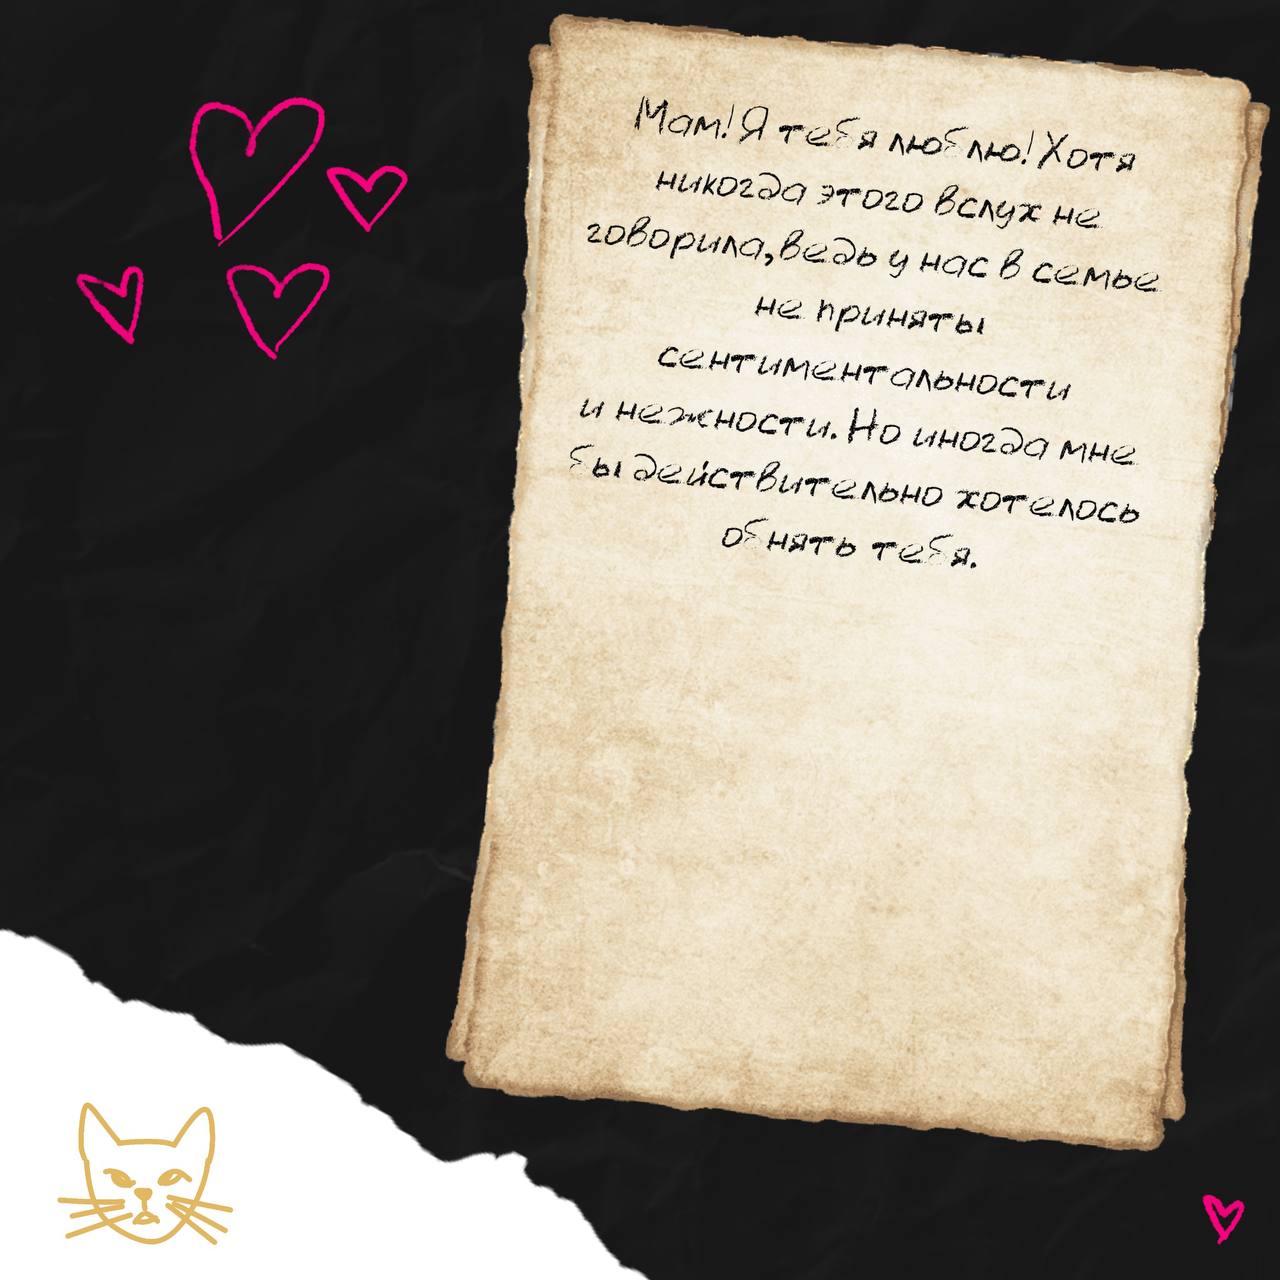 Мам! Я тебя люблю! Хотя
никогда этого вслух не
говорила, ведь у нас в семье
не приняты
сентиментальности
и нежности. Но иногда мне
бы действительно хотелось
обнять тебя.